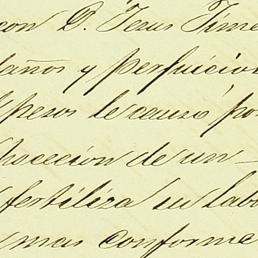 con D. Jesus Jime
daños y perjuicios
pesos le causó por
de un
fertiliza su labo
mas conforme